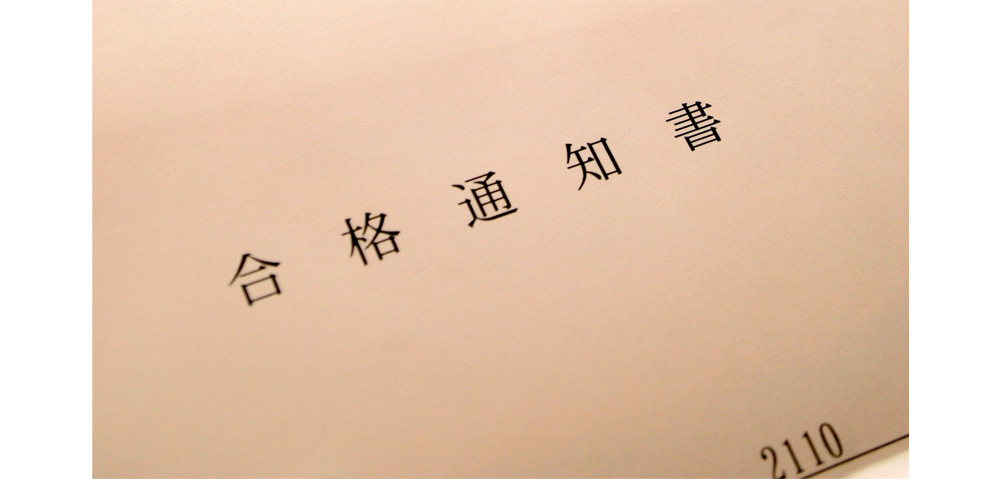 合格通知書
2110